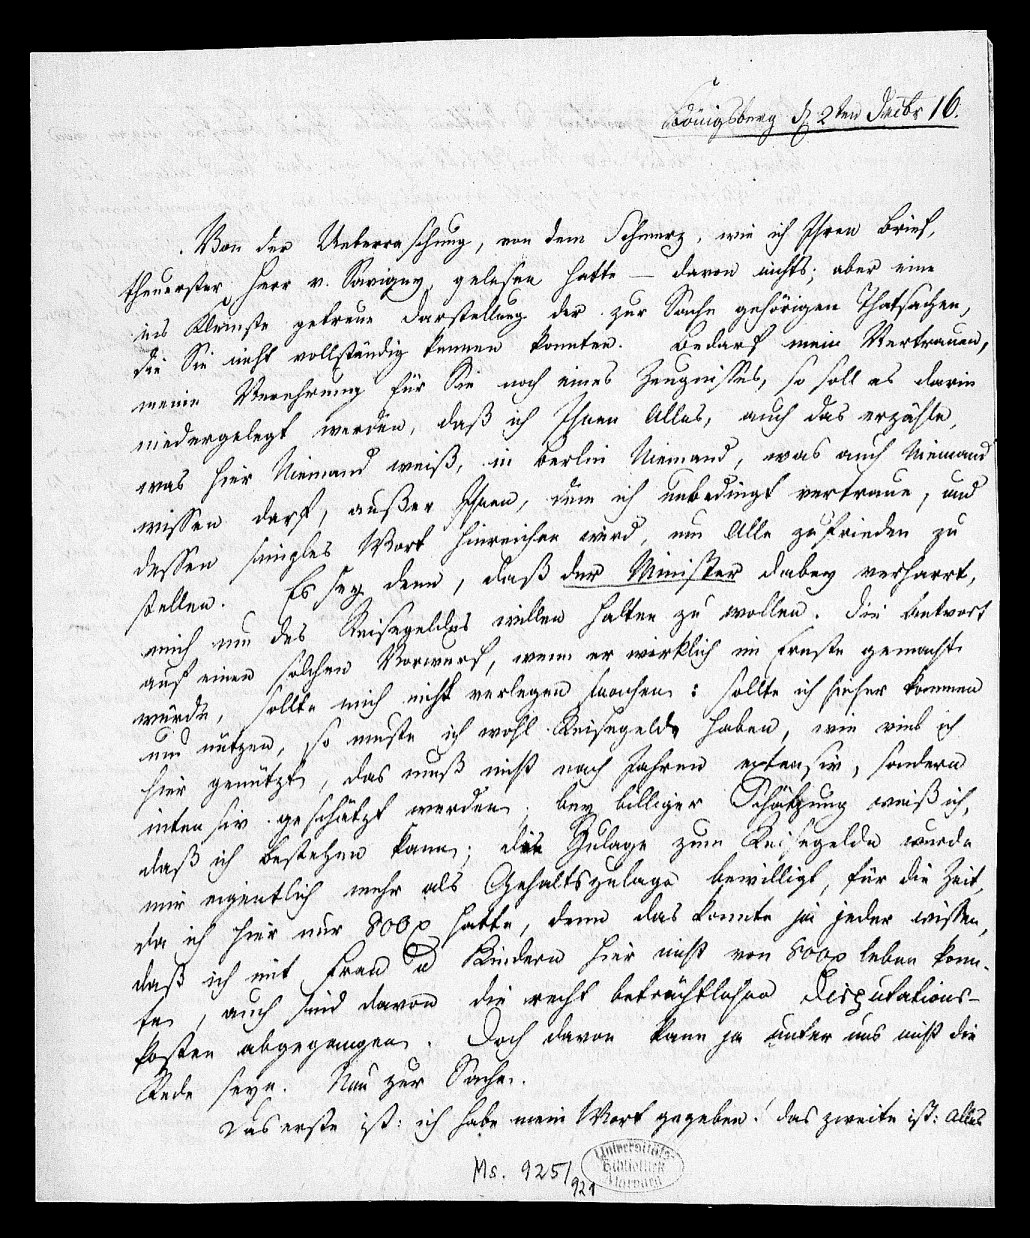 Königsberg d 2ten Decbr 16.
Von der Ueberraschung, von dem Schmerz, wie ich Ihren Brief,
theuerster Herr v. Savigny, gelesen hatte – davon nichts; aber eine
ins Kleinste getreue Darstellung der zur Sache gehörigen Thatsachen,
die Sie nicht vollständig kennen konnten. Bedarf mein Vertrauen,
meine Verehrung für Sie noch eines Zeugnisses, so soll es darin
niedergelegt werden, daß ich Ihnen Alles, auch das erzähle,
was hier Niemand weiß, in Berlin Niemand, was auch Niemand
wissen darf, außer Ihnen, dem ich unbedingt vertraue, und
dessen simples Wort hinreichen wird, um Alle zufrieden zu
stellen. Es sey denn, daß der Minister dabey verharrt,
mich um des Reisegeldes willen halten zu wollen. Die Antwort
auf einen solchen Vorwurf, wenn er wirklich im Ernste gemacht
würde, sollte mich nicht verlegen machen: sollte ich hieher kommen
und nützen, so muste ich wohl Reisegeld haben, wie viel ich
hier genützt, das muß nicht nach Jahren extensiv, sondern
intensiv geschätzt werden; bey billiger Schätzung weiß ich,
daß ich bestehen kann; die Zulage zum Reisegelde wurde
mir eigentlich mehr als Gehaltszulage bewilligt, für die Zeit,
da ich hier nur 800 hatte, denn das konnte ja jeder wissen,
daß ich mit Frau u Kindern hier nicht von 800 leben konn-
te, auch sind davon die recht beträchtlichen Disputations-
kosten abgegangen. Doch davon kann ja unter uns nicht die
Rede seyn. Nun zur Sache.
Das erste ist: ich habe mein Wort gegeben! das zweite ist: alles
Ms. 925/921
Universitäts-
Bibliothek
Marburg